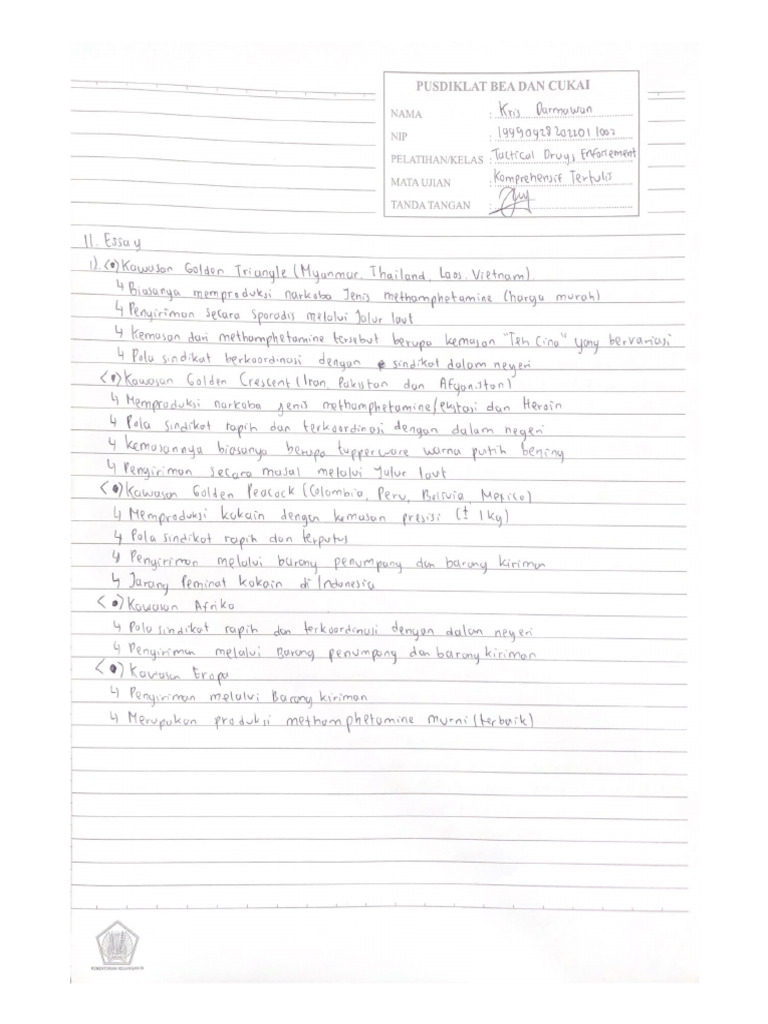 PUSDIKLAT BEA DAN CUKAI
NAMA : Kris Darmawan
NIP : 199909282022011002
PELATIHAN/KELAS : Tactical Drugs Enforcement
MATA UJIAN : Komprehensif Tertulis
TANDA TANGAN :
II. Essay
1). Kawasan Golden Triangle (Myanmar, Thailand, Laos, Vietnam)
↳ Biasanya memproduksi narkoba Jenis methamphetamine (harga murah)
↳ Pengiriman secara sporadis melalui Jalur laut
↳ Kemasan dari methamphetamine tersebut berupa kemasan "Teh Cina" yang bervariasi
↳ Pola sindikat berkoordinasi dengan sindikat dalam negeri
Kawasan Golden Crescent (Iran, Pakistan dan Afganistan)
↳ Memproduksi narkoba jenis methamphetamine/ekstasi dan Heroin
↳ Pola sindikat rapih dan terkoordinasi dengan dalam negeri
↳ kemasannya biasanya berupa tupperware warna putih bening
↳ Pengiriman secara masal melalui Jalur laut
Kawasan Golden Peacock (Colombia, Peru, Bolivia, Mexico)
↳ Memproduksi kokain dengan kemasan presisi (± 1 Kg)
↳ Pola sindikat rapih dan terputus
↳ Pengiriman melalui barang penumpang dan barang kiriman
↳ Jarang Peminat kokain di Indonesia
Kawasan Afrika
↳ Pola sindikat rapih dan terkoordinasi dengan dalam negeri
↳ Pengiriman melalui Barang penumpang dan barang kiriman
Kawasan Eropa
↳ Pengiriman melalui Barang kiriman
↳ Merupakan produksi methamphetamine murni (terbaik)
KEMENTERIAN KEUANGAN RI